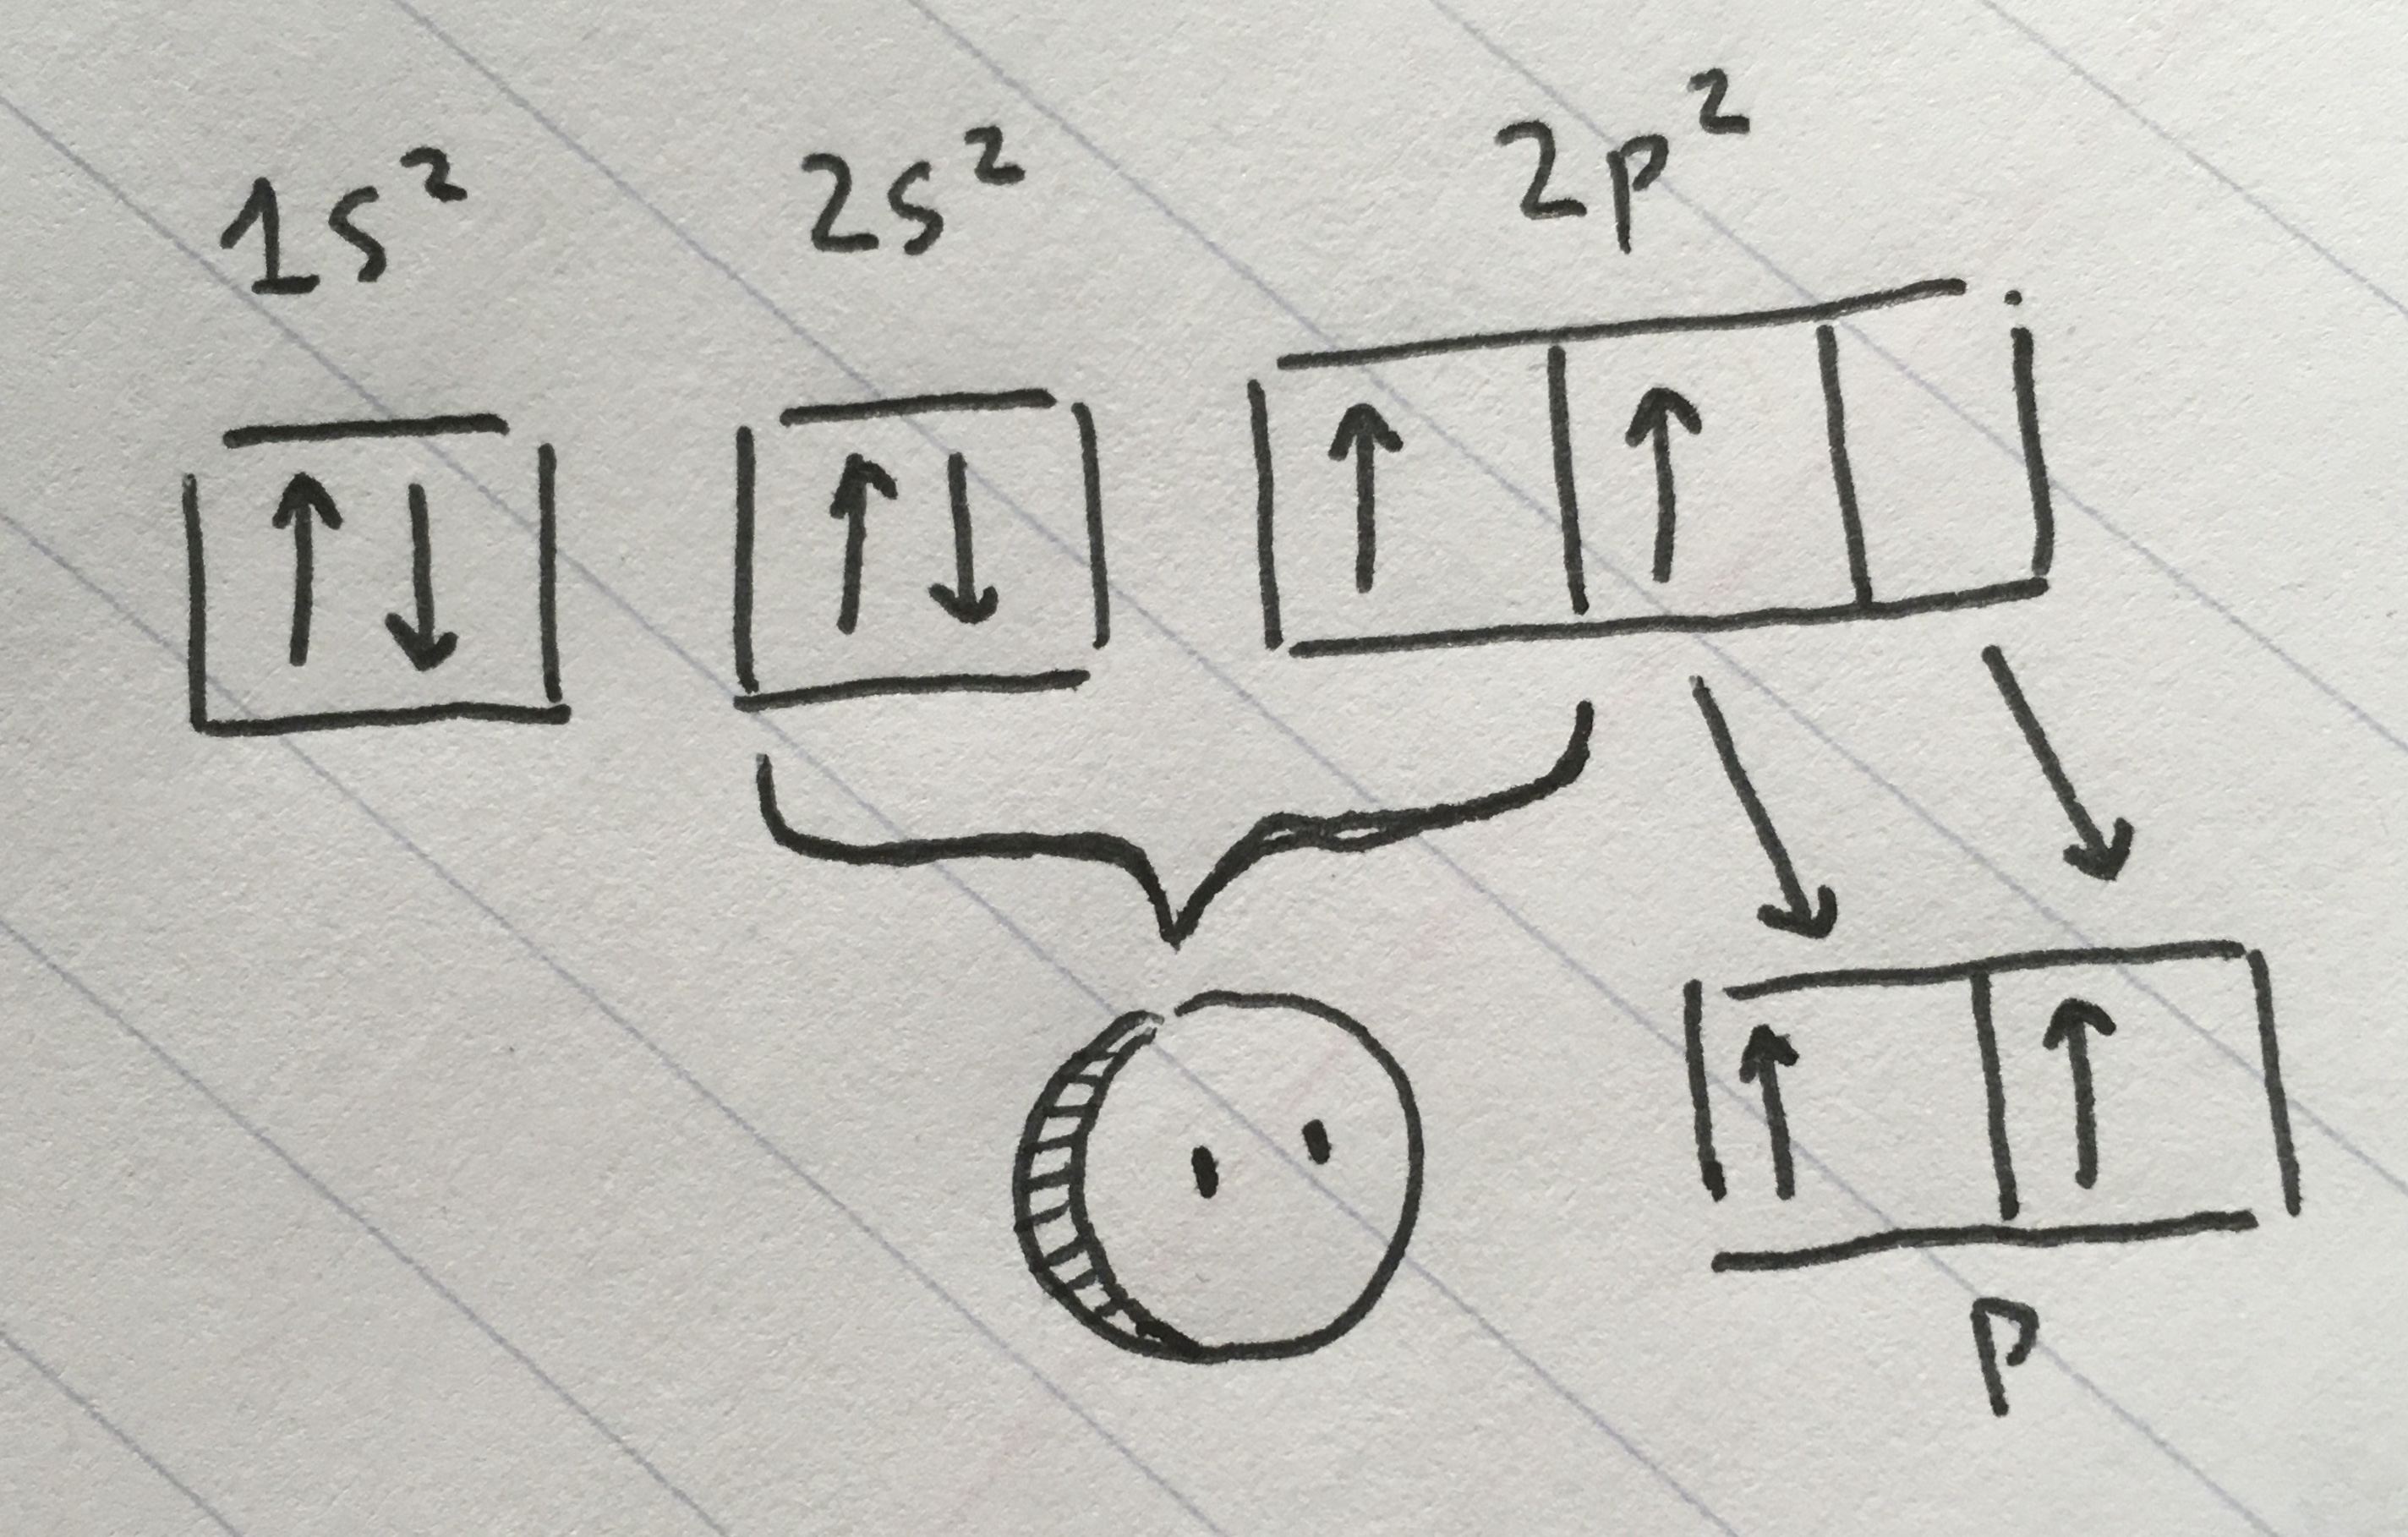 1s² 2s² 2p²
p